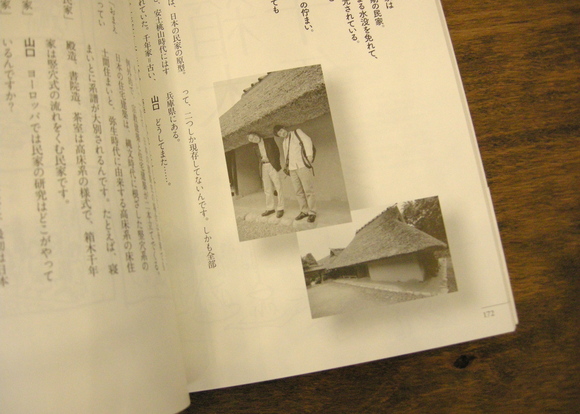 は
期の民家。
る水没を免れて、
元されている。
の佇まい。
ても
日本の民家の原型。
安土桃山時代にはす
れていた。千年家=古い、
って、二つしか現存してないんです。しかも全部
兵庫県にある。
山口　どうしてまた……。
172
日本の住宅建築は、縄文時代に根ざした竪穴系の
土間住まいと、弥生時代に由来する高床系の床住
まいとに系譜が大別されるんです。たとえば、寝
殿造、書院造、茶室は高床系の様式で、箱木千年
家は竪穴式の流れをくむ民家です。
山口　ヨーロッパでは民家の研究はどこがやって
いるんですか？